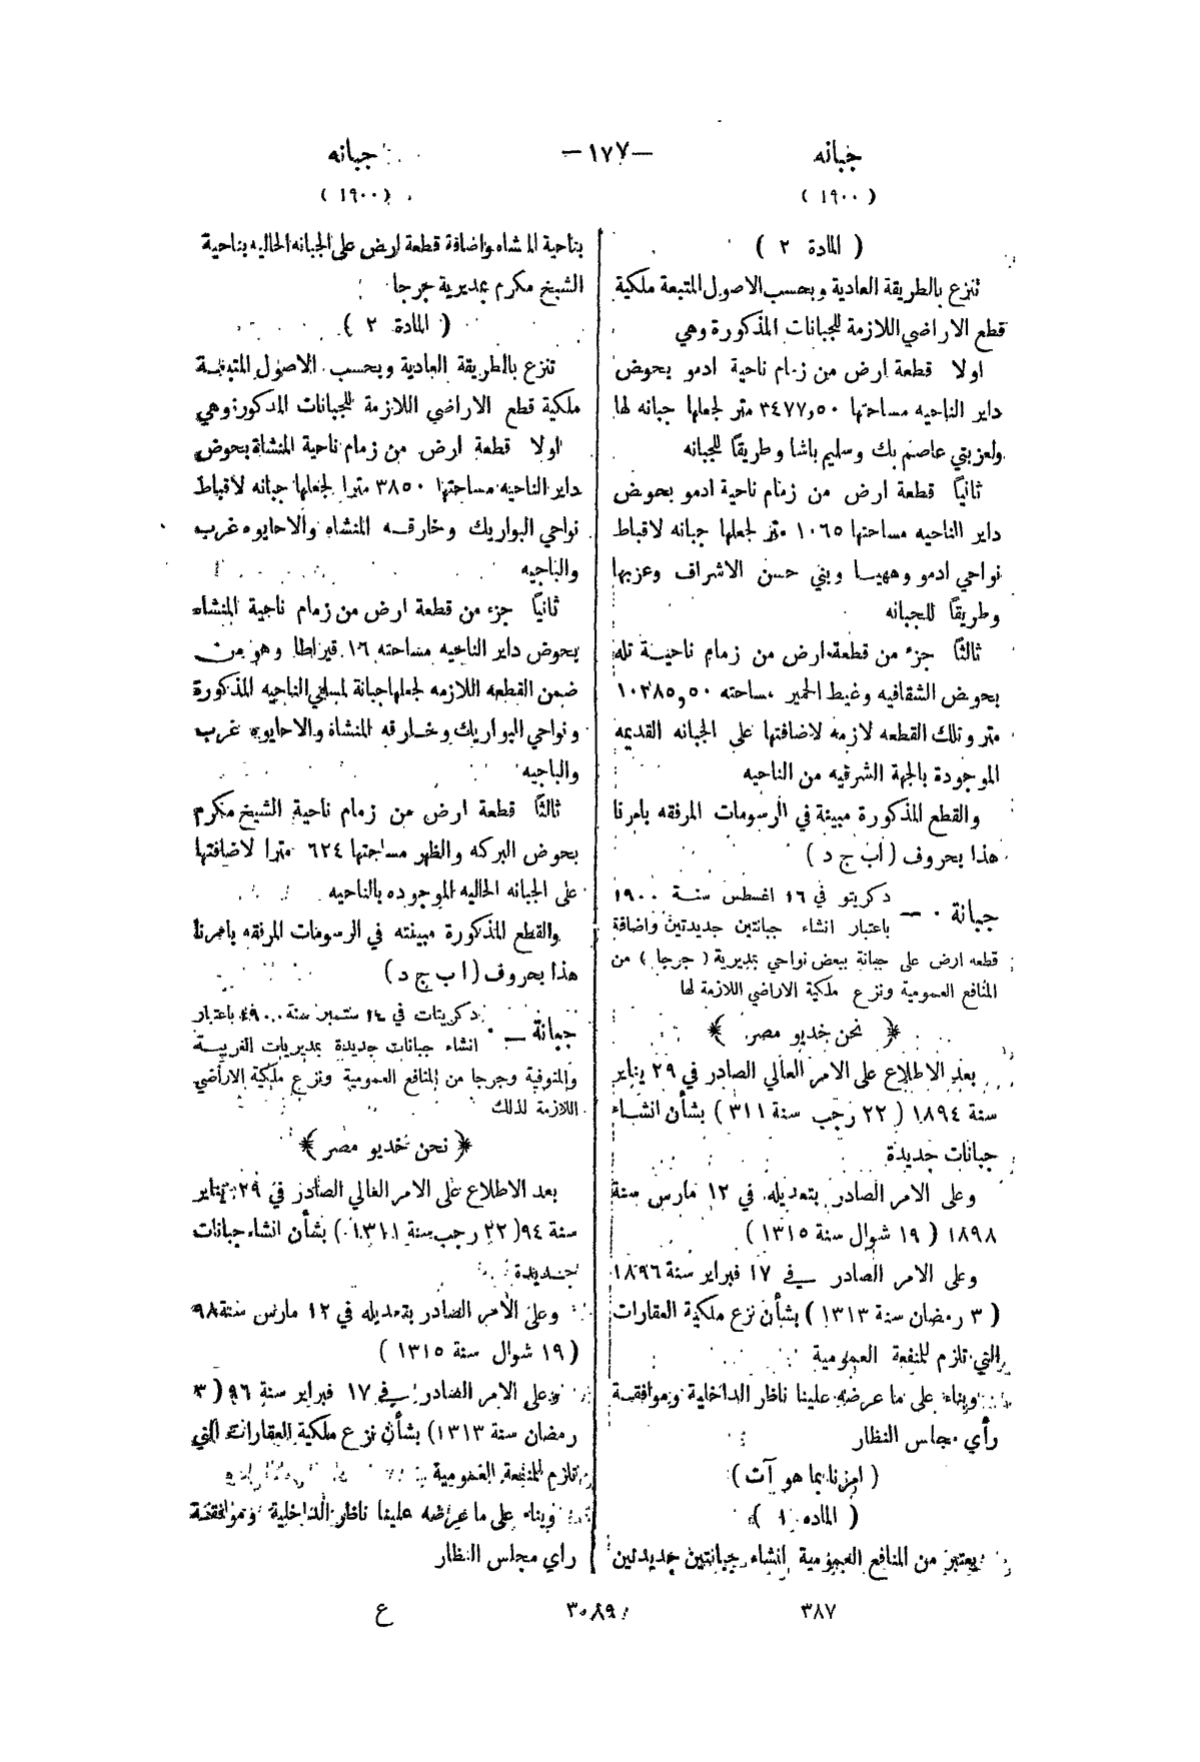 جبانه
—١٧٧—
جبانه
(١٩٠٠)
(١٩٠٠)
( المادة ٢ )
تنزع بالطريقة العادية وبحسب الاصول المتبعة ملكية
قطع الاراضي اللازمة للجبانات المذكورة وهي
اولا قطعة ارض من زمام ناحية ادمو بحوض
داير الناحيه مساحتها ٣٤٧٧,٥٠ متر لجعلها جبانه لها
ولعزبتي عاصم بك وسليم باشا وطريقًا للجبانه
ثانيًا قطعة ارض من زمام ناحية ادمو بحوض
داير الناحيه مساحتها ١٠٦٥ متر لجعلها جبانه لاقباط
نواحي ادمو وههيسا وبني حسن الاشراف وعزبها
وطريقًا للجبانه
ثالثًا جزء من قطعة ارض من زمام ناحيـة تله
بحوض الشقافيه وغيط الحمير مساحته ١٠٣٨٥,٥٠
متر وتلك القطعه لازمه لاضافتها على الجبانه القديمه
الموجودة بالجهة الشرقيه من الناحيه
والقطع المذكورة مبينة في الرسومات المرفقه بامرنا
هذا بحروف ( اب ج د )
جبانة — دكريتو في ١٦ اغسطس سنـة ١٩٠٠
باعتبار انشاء جبانتين جديدتين واضافة
قطعه ارض على جبانة ببعض نواحي بمديرية ( جرجا ) من
المنافع العمومية ونزع ملكية الاراضي اللازمة لها
﴿ نحن خديو مصر ﴾
بعد الاطلاع على الامر العالي الصادر في ٢٩ يناير
سنة ١٨٩٤ ( ٢٢ رجب سنة ٣١١ ) بشأن انشـاء
جبانات جديدة
وعلى الامر الصادر بتعديله في ١٢ مارس سنة
١٨٩٨ ( ١٩ شوال سنة ١٣١٥ )
وعلى الامر الصادر في ١٧ فبراير سنة ١٨٩٦
( ٣ رمضان سنة ١٣١٣ ) بشأن نزع ملكية العقارات
التي تلزم للمنفعة العمومية
وبناء على ما عرضه علينا ناظر الداخلية وموافقـة
رأي مجلس النظار
( امرنا بما هو آت )
( الماده ١ )
يعتبر من المنافع العمومية انشاء جبانتين جديدتين
بناحية المنشاه واضافة قطعة ارض على الجبانه الحاليه بناحية
الشيخ مكرم بمديرية جرجا
( المادة ٢ )
تنزع بالطريقة العادية وبحسب الاصول المتبعـة
ملكية قطع الاراضي اللازمة للجبانات المذكورة وهي
اولا قطعة ارض من زمام ناحية المنشاة بحوض
داير الناحيه مساحتها ٣٨٥٠ مترا لجعلها جبانه لاقباط
نواحي البواريك وخارقـه المنشاه والاحايوه غرب
والباجيه
ثانيًا جزء من قطعة ارض من زمام ناحية المنشاه
بحوض داير الناحيه مساحته ١٦ قيراطا وهو من
ضمن القطعه اللازمه لجعلها جبانة لمسلمي الناحيه المذكورة
ونواحي البواريك وخـارقه المنشاة والاحايوه غرب
والباجيه
ثالثًا قطعة ارض من زمام ناحية الشيخ مكرم
بحوض البركه والظهر مساحتها ٦٢٤ مترا لاضافتها
على الجبانه الحاليه الموجوده بالناحيه
والقطع المذكورة مبينته في الرسومات المرفقه بامرنا
هذا بحروف ( ا ب ج د )
جبانة — دكريتات في ١٤ سبتمبر سنة ١٩٠٠ باعتبار
انشاء جبانات جديدة بمديريات الغربيـة
والمنوفية وجرجا من المنافع العمومية ونزع ملكية الاراضي
اللازمة لذلك
﴿ نحن خديو مصر ﴾
بعد الاطلاع على الامر العالي الصادر في ٢٩ يناير
سنة ٩٤ ( ٢٢ رجب سنة ١٣١١ ) بشأن انشاء جبانات
جـديدة
وعلى الامر الصادر بتعديله في ١٢ مارس سنة ٩٨
( ١٩ شوال سنة ١٣١٥ )
وعلى الامر الصادر في ١٧ فبراير سنة ٩٦ ( ٣
رمضان سنة ١٣١٣ ) بشأن نزع ملكية العقارات التي
تلزم للمنفعة العمومية
وبناء على ما عرضه علينا ناظر الداخلية وموافقـة
راي مجلس النظار
٣٨٧
٣٠٨٩
ع